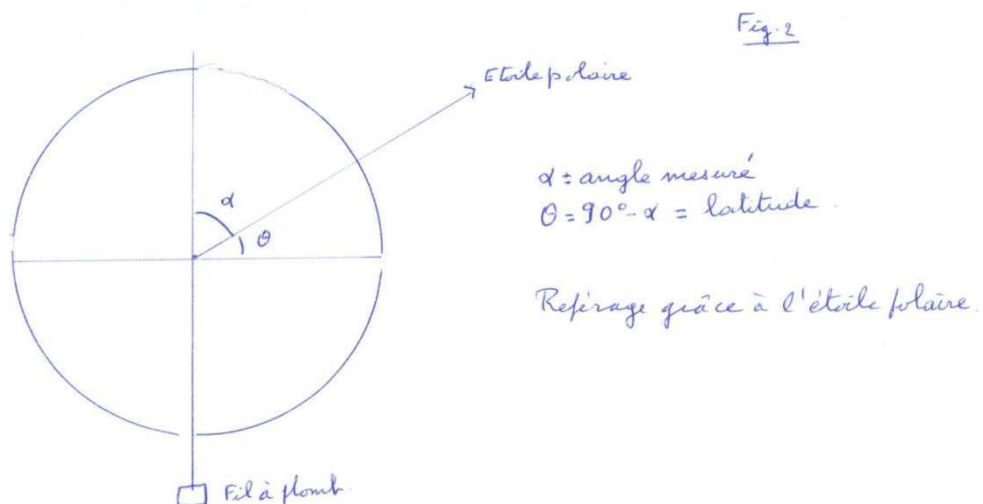 Fig. 2
Etoile polaire
α = angle mesuré
θ = 90° - α = latitude.
α
θ
Repérage grâce à l'étoile polaire.
Fil à plomb.